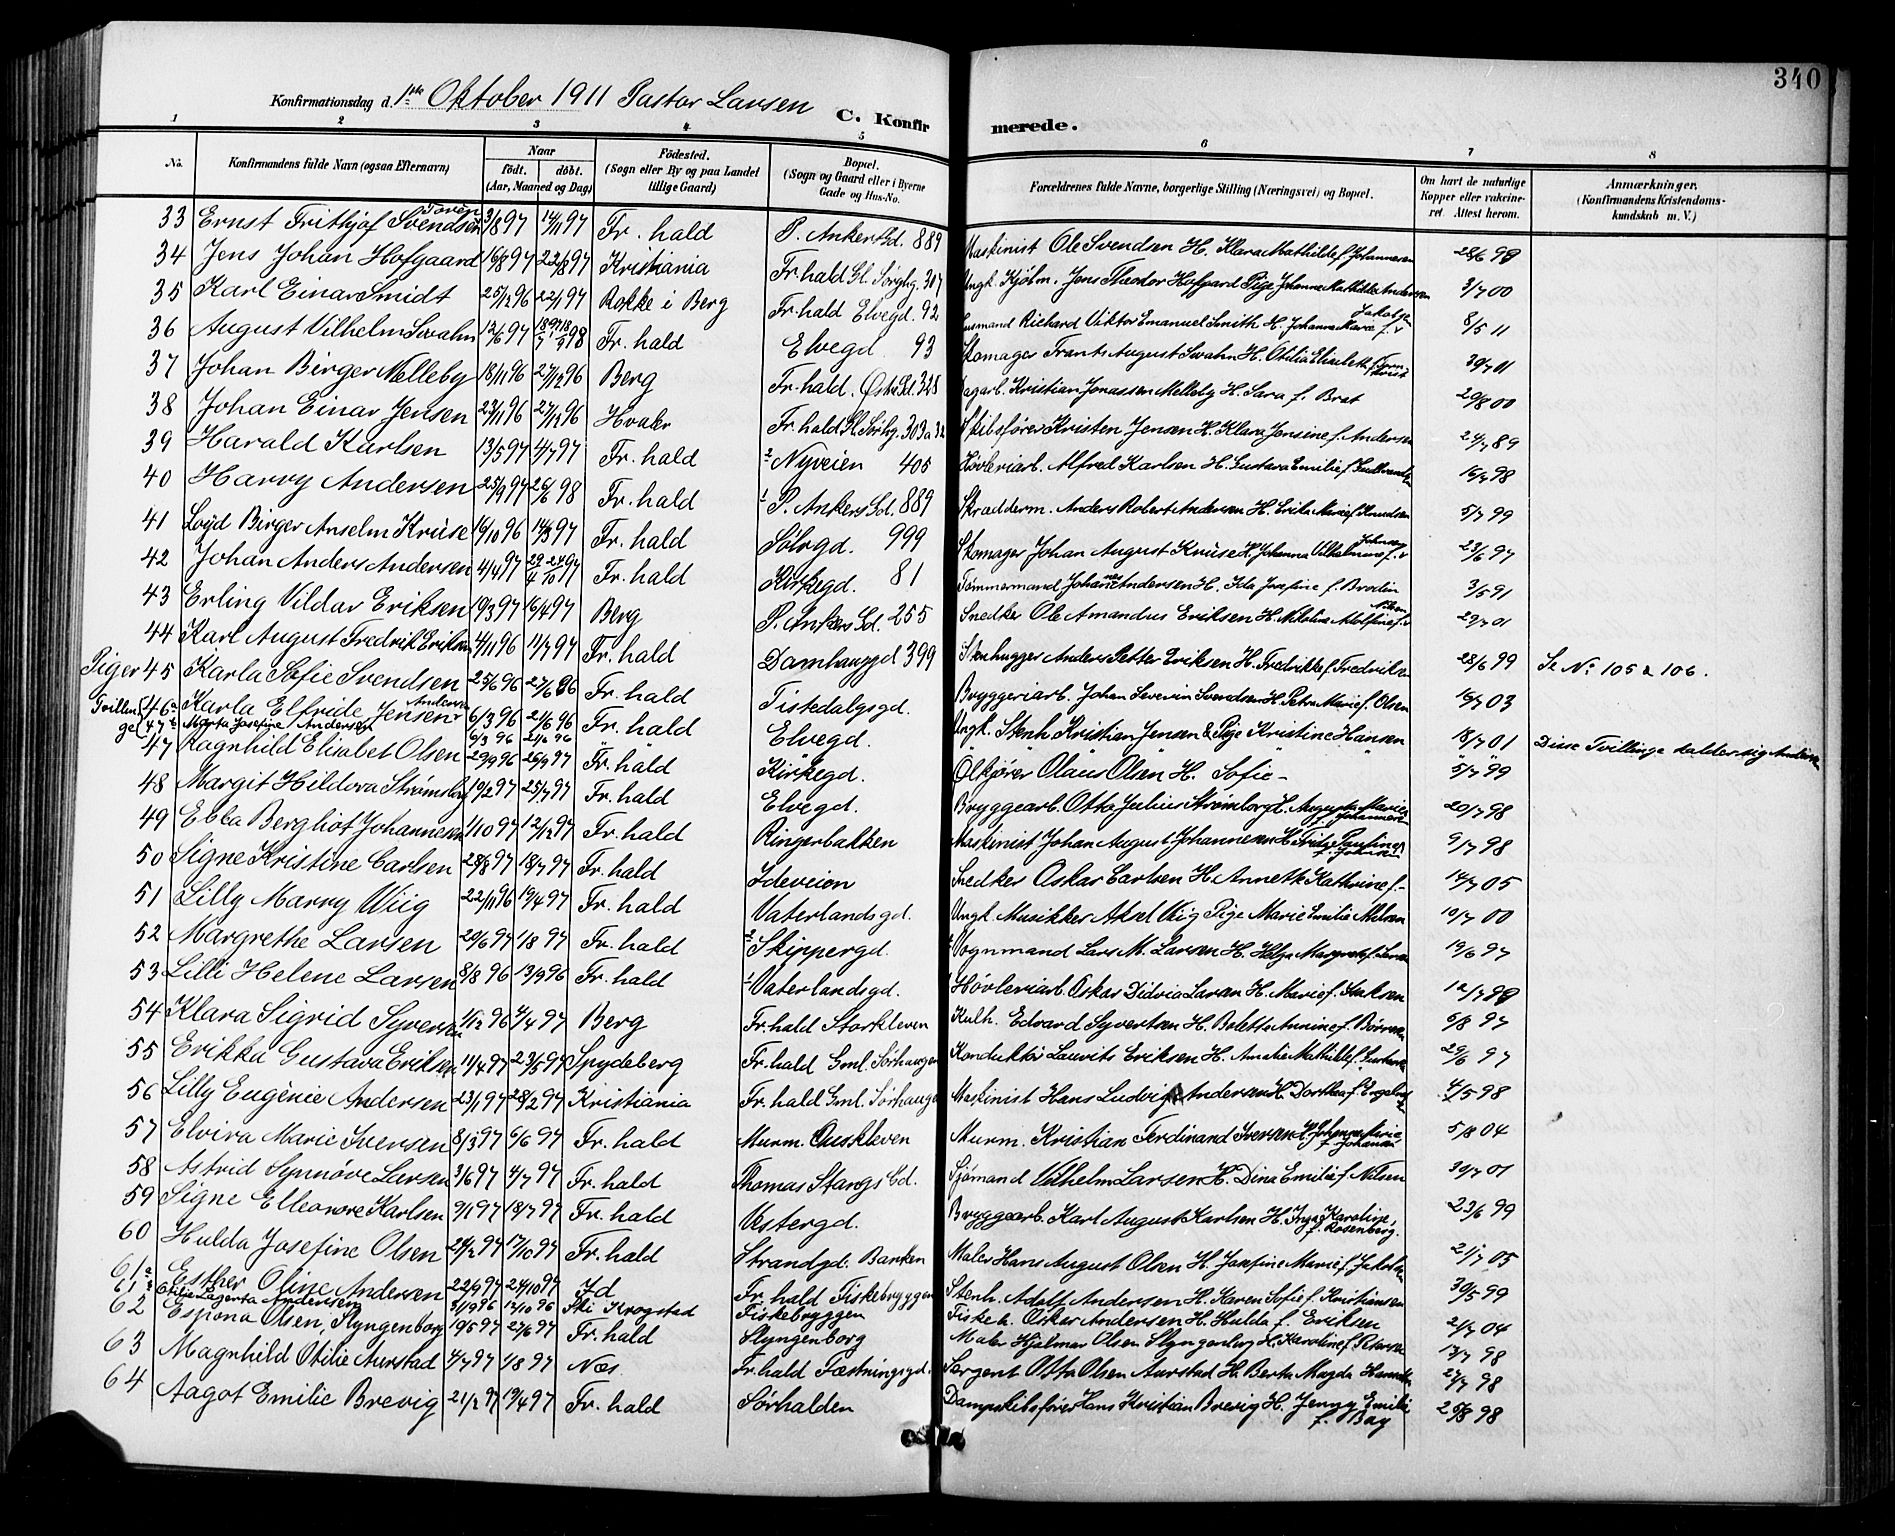 340
Konfirmationsdag d. 1ste Oktober 1911 Pastor Larsen C. Konfirmerede.
1 2 3 4 5 6 7 8
No. Konfirmandens fulde Navn (ogsaa Efternavn) Naar født. døbt. (Aar, Maaned og Dag) Fødested. (Sogn eller By og paa Landet tillige Gaard) Bopæl. (Sogn og Gaard eller i Byerne Gade og Hus-No. Forældrenes fulde Navne, borgerlige Stilling (Næringsvei) og Bopæl. Om havt de naturlige Kopper eller vakcineret. Attest herom. Anmærkninger. (Konfirmandens Kristendomskundskab m. V.)
33 Ernst Frithjof Svendsen 3/8 97 14/11 97 Fr. hald P. Ankers Gd. 889 Maskinist Ole Svendsen H. Klara Mathilde f. Johannesen 28/6 98
34 Jens Johan Hofgaard 16/8 97 22/8 97 Kristiania Fr. hald Gl. Sørhg. 307 Ungk. Kjøbm. Jens Theodor Hofgaard Pige Johanne Mathilde Andersen 3/7 00
35 Karl Einar Smidt 25/12 96 22/1 97 Rokke i Berg Fr. hald Elvegd. 92 Husmand Richard Viktor Emanuel Smith H. Johanna Marie f. Jakobsen 8/5 11
36 August Vilhelm Svahn 12/6 97 Fr. hald Elvegd. 93 Skomager Frants August Svahn H. Otilia Elisabeth f. 30/7 01
37 Johan Birger Melleby 18/11 96 27/12 96 Berg Fr. hald. Øst. Gd. 328 Dagarb. Kristian Jonassen Melleby H. Sara f. Brat 20/8 00
38 Johan Einar Jensen 23/11 96 27/12 96 Hvaler Fr. hald Gl. Sørhg. 303 a Skibsfører Kristen Jensen H. Klara Jensine f. Andersen 24/7 89
39 Harald Karlsen 13/5 97 4/7 97 Fr. hald Nyveien 405 Høvleriarb. Alfred Karlsen H. Gustava Emilie f. 16/7 98
40 Harry Andersen 25/9 97 26/6 98 Fr. hald P. Ankers Gd. 889 Skrædderm. Anders Robert Andersen H. Erika Marie f. Knudsen 5/7 99
41 Loyd Birger Anselm Krüse 16/10 96 14/3 97 Fr. hald Sølvgd. 999 Skomager Johan August Krüse H. Johanna Vilhelmina f. Johnsen 23/6 97
42 Johan Anders Andersen 4/4 97 Fr. hald Kirkegd. 81 Tømmermand Johannes Andersen H. Ida Josefine f. Brodin 3/5 91
43 Erling Vildar Eriksen 19/3 97 16/4 97 Berg P. Ankers Gd. 255 Snedker Ole Amandus Eriksen H. Nikoline Adolfine f. Nilsen 29/7 01
44 Karl August Fredrik Eriksen 4/11 96 11/7 97 Fr. hald Damhauggd 399 Stenhugger Anders Petter Eriksen H. Fredrikke f. Fredriksen 28/6 99 Se No 105 & 106.
Piger 45 Karla Sofie Svendsen 25/6 96 27/6 96 Fr. hald Tistedalsgd. Bryggeriarb. Johan Severin Svendsen H. Petra Marie f. Olsen 16/7 03
Tvillinge 46a Karla Elfride Jensen Andersen 6/3 96 21/6 96 Fr. hald Elvegd. Ungk. Stenh. Kristian Jensen & Pige Kristine Hansen 18/7 01 Disse Tvillinge kalder sig Andersen
47b Marta Josefine Andersen 6/3 96 21/6 96 " " " "
47 Ragnhild Elisabet Olsen 29/9 96 26/9 97 Fr. hald Kirkegd. Ølkjører Olaus Olsen H. Sofie - 5/7 99
48 Margit Hildora Strømsborg 19/2 97 25/7 97 Fr. hald Elvegd. Bryggearb. Otto Julius Strømborg H. Augusta Marie f. Johannesen 20/7 98
49 Ebba Bergliot Johannesen 1/10 97 12/12 97 Fr. hald Ringerbakken Maskinist Johan August Johannesen H. 9/7 98
50 Signe Kristine Carlsen 28/8 97 18/7 97 Fr. hald Ideveien Snedker Oskar Carlsen H. Anneth Kathrine f. - 14/7 05
51 Lilly Marry Wiig 22/11 96 19/4 97 Fr. hald Vaterlandsgd. Ungk. Musikker Aksel Wiig Pige Marie Emilie Nilsen 10/7 00
52 Margrethe Larsen 20/6 97 1/8 97 Fr. hald Skippergd. Vognmand Lars M. Larsen H. Helga Margrete f. 19/6 97
53 Lilli Helene Larsen 8/8 96 13/9 96 Fr. hald Vaterlandsgd. Høvleriarb. Oskar Didvia Larsen H. Marie f. Isaksen 12/7 98
54 Klara Sigrid Syversen 1/12 96 4/4 97 Berg Fr. hald Storkleven Kulh. Edvard Syvertsen H. Bolette Annine f. 6/8 97
55 Erikka Gustava Eriksen 11/4 97 23/5 97 Spydeberg Fr. hald Gml. Sørhaugen Konduktør Lauvits Eriksen H. Amalie Mathilde f. 29/6 97
56 Lilly Eugènie Andersen 23/1 97 28/2 97 Kristiania Fr. hald Gml. Sørhaugen Maskinist Hans Ludvig Andersen H. Dorthea f. 4/5 98
57 Elvira Marie Iversen 8/3 97 6/6 97 Fr. hald Murm. Ouskleven Murm. Kristian Ferdinand Iversen H. Johanne Marie f. Johansen 5/8 04
58 Astrid Synnöve Larsen 3/6 97 4/7 97 Fr. hald Thomas Stangs Gd. Sjømand Vilhelm Larsen H. Dina Emilie f. Nilsen 30/7 01
59 Signe Elleonore Karlsen 9/1 97 18/7 97 Fr. hald Vestergd. Bryggearb. Karl August Karlsen H. Inga Karoline, f. Rosenberg. 23/6 99
60 Hulda Josefine Olsen 24/2 97 17/10 97 Fr. hald Strandgd. Banken Maler Hans August Olsen H. Josefine Marie f. Jakobsen 21/7 05
61a Esther Oline Andersen 22/9 97 24/10 97 Id Fr. hald Fiskebryggen Stenh. Adolf Andersen H. Karen Sofie f. Kristiansen 30/5 99
61b Otilie Lagerta Andersen 31/9 96 13/10 96 Ski Krogstad Fiskebryggen Fiskeh. Oskar Andersen H. Hulda f. Eriksen 2/7 04
62 Espiona Olsen, Slyngenborg 19/5 97 27/6 97 Fr. hald Slyngenborg Maler Hjalmar Olsen Slyngenborg H. Karoline f. Petersen 13/7 98
63 Magnhild Otilie Aurstad 4/7 97 1/8 97 Næs Fr. hald Fæstningsgd. Sergent Otto Olsen Aurstad H. Berta Magda 27/7 98
64 Aagot Emilie Brevig 21/2 97 19/4 97 Fr. hald Sørhalden Dampskibsfører Hans Kristian Brevig H. Jenny Emilie f. Bay 26/8 98